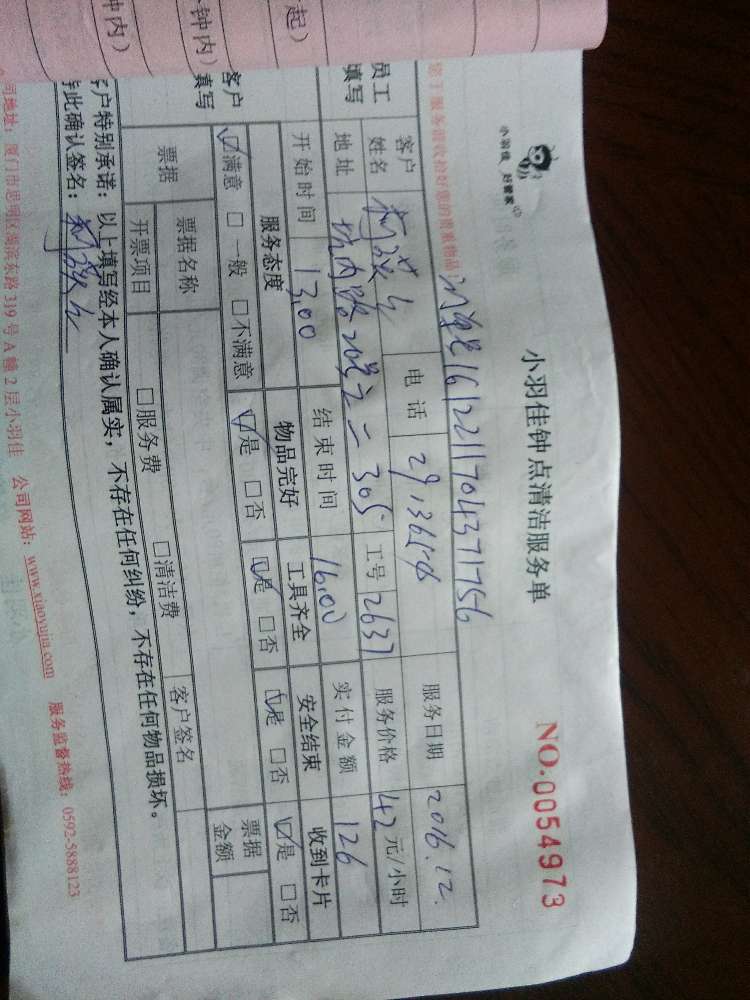 小羽佳 好管家
小羽佳钟点清洁服务单
NO.0054973
订单号161221170437 1756
员工填写
客户姓名 电话 服务日期 2016.12.
地址 工号 2637 服务价格 42元/小时
开始时间 13.00 结束时间 16.00 实付金额 126
客户填写
服务态度 物品完好 工具齐全 安全结束 收到卡片
☑满意 □一般 □不满意 ☑是 □否 ☑是 □否 ☑是 □否 ☑是 □否
票据 票据名称 票据金额
开票项目 □服务费 □清洁费 客户签名
客户特别承诺：以上填写经本人确认属实，不存在任何纠纷，不存在任何物品损坏。
此确认签名：
司地址：厦门市思明区湖滨东路319号A幢2层小羽佳 公司网站：www.xiaoyujia.com 服务监督热线：0592-5888123
起）
钟内）
钟内）